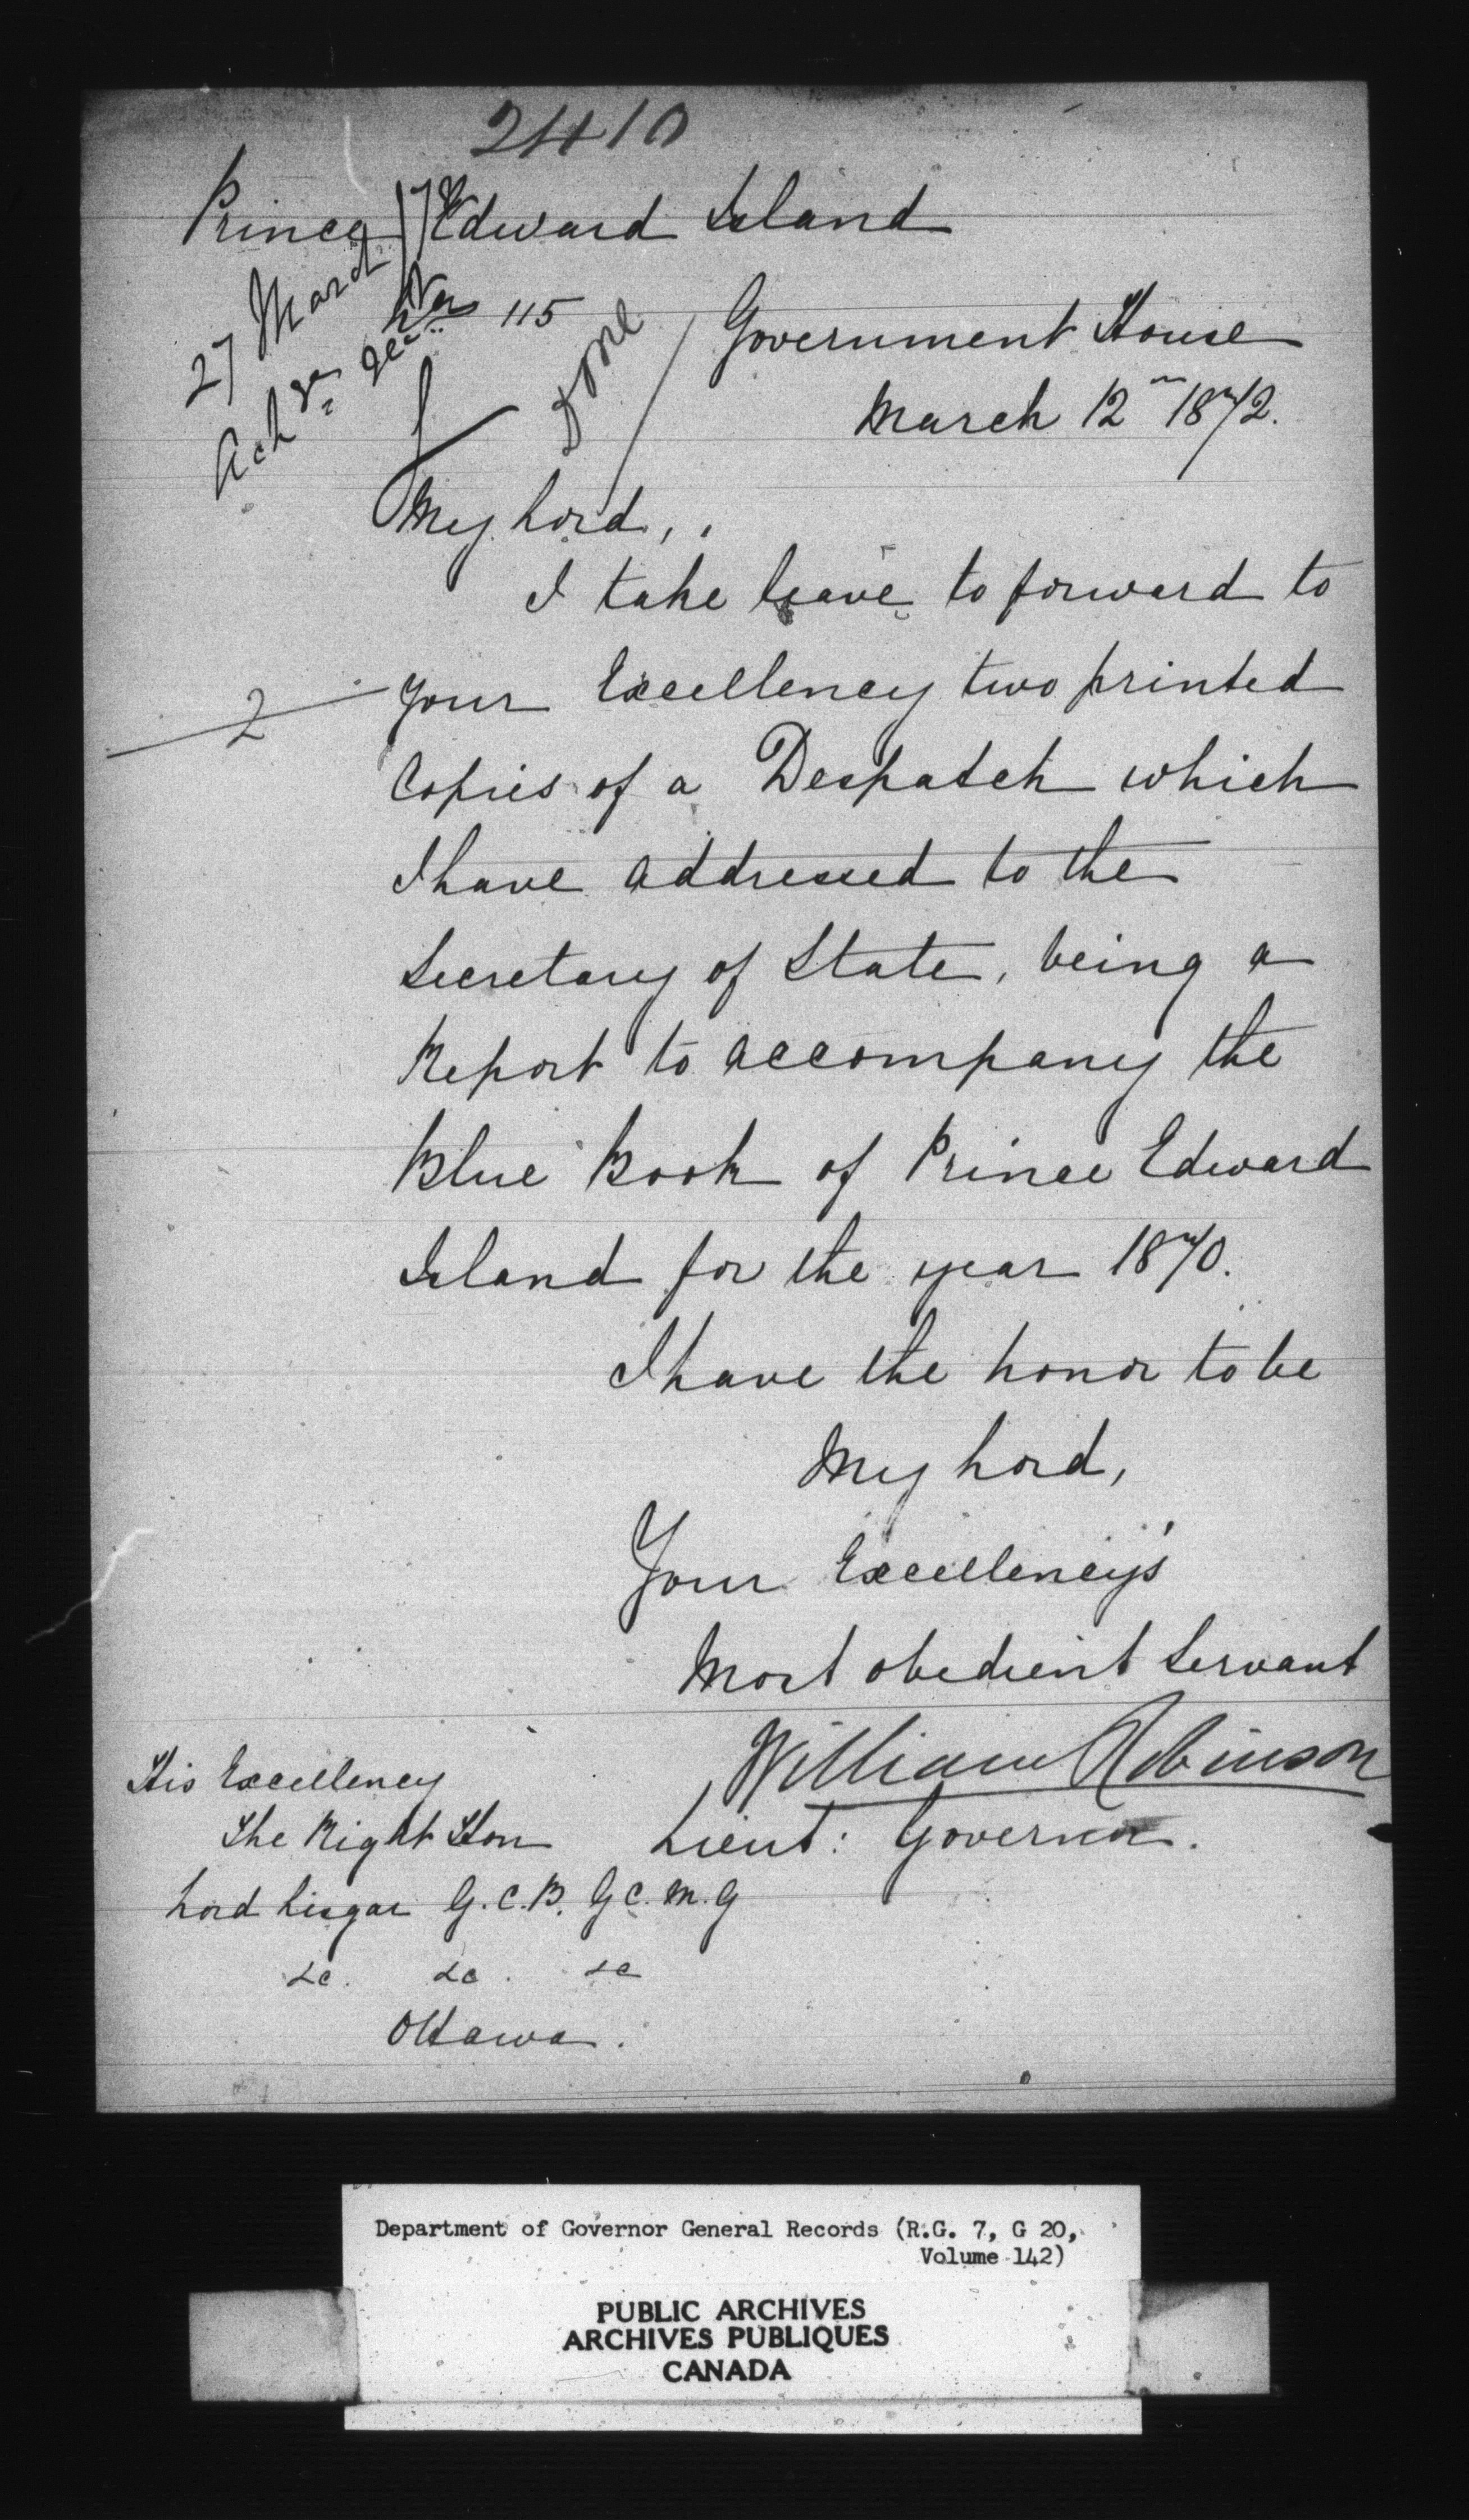 2410
Prince Edward Island
No 115
27 March /72
Done
Government House
March 12th 1872.
My Lord,
I take leave to forward to
2
Your Excellency two printed
Copies of a Despatch which
I have addressed to the
Secretary of State, being a
Report to accompany the
Blue Book of Prince Edward
Island for the year 1870.
I have the honor to be
My Lord,
Your Excellency's
Most obedient Servant
William Robinson
Lieut: Governor.
His Excellency
The Right Hon
Lord Lisgar G.C.B. G.C.M.G
&c. &c. &c
Ottawa.
Department of Governor General Records (R.G. 7, G 20,
Volume 142)
PUBLIC ARCHIVES
ARCHIVES PUBLIQUES
CANADA